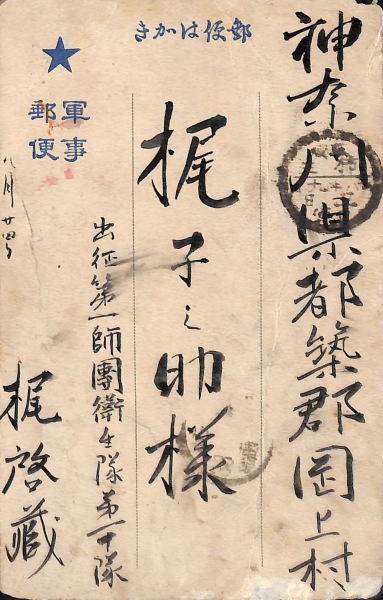 郵便はがき
軍事
郵便
神奈川県都築郡岡上村
梶子之助様
出征第一師團衛生隊第一中隊
梶啓藏
八月廿四日